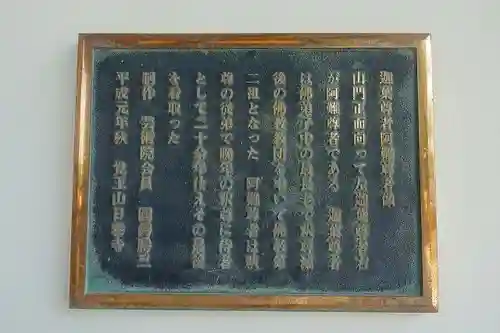 迦葉尊者阿難尊者像
山門正面向って左迦葉尊者右
が阿難尊者である 迦葉尊者
は佛弟子中の最長老で釈尊滅
後の佛教教団を率いて佛教第
二祖となった 阿難尊者は釈
尊の従弟で晩年の釈尊に侍者
として二十余年仕えその最後
を看取った
制作 芸術院会員 圓鍔勝三
平成元年秋 山日